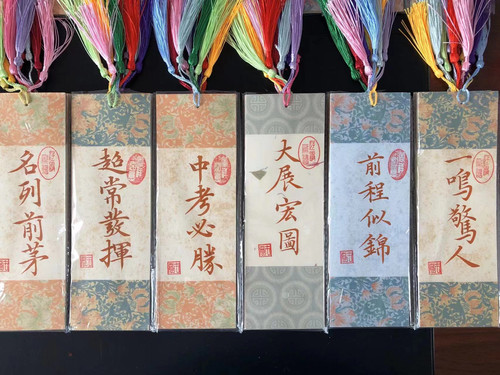 名列前茅
超常發揮
中考必勝
大展宏圖
前程似錦
一鳴驚人